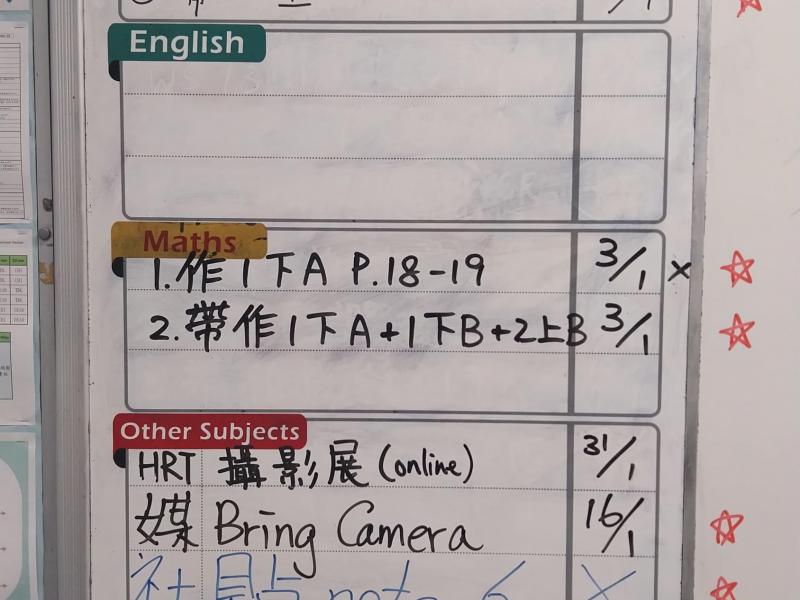 English
Maths
1.作1下A P.18-19 3/1 ×
2.帶作1下A+1下B+2上B 3/1
Other Subjects
HRT 攝影展(online) 31/1
媒 Bring Camera 16/1